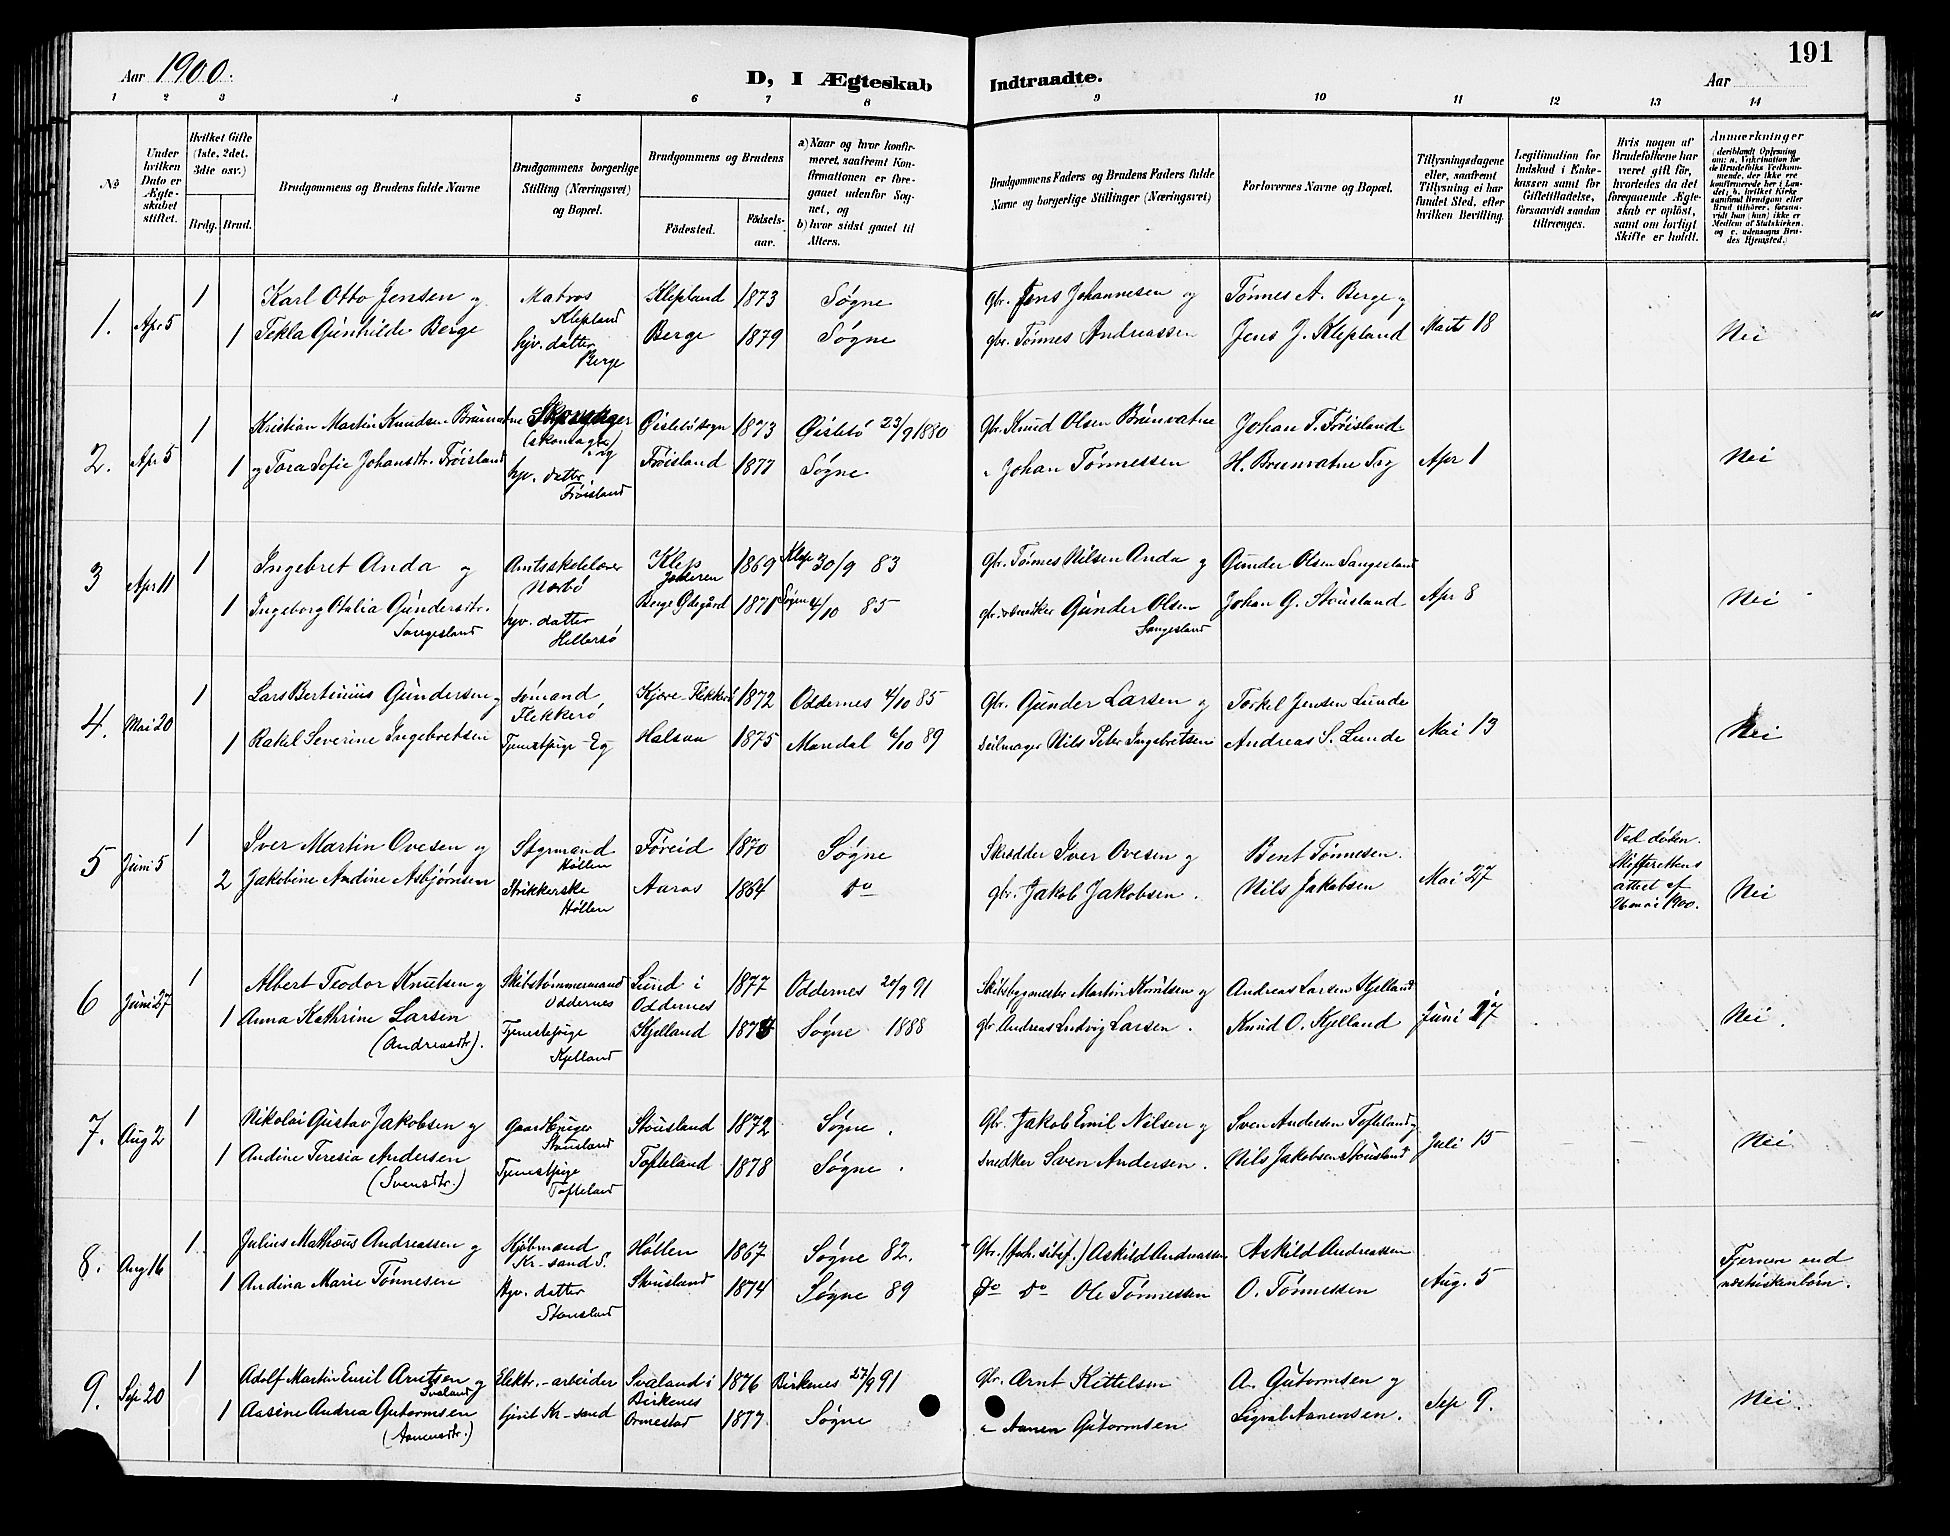 191
Aar 1900.
D, I Ægteskab Indtraadte.
Aar
1 2 3 4 5 6 7 8 9 10 11 12 13 14
No
Under hvilken Dato er Ægteskabet stiftet.
Hvilket Gifte (1ste, 2det, 3die osv.)
Brdg. Brud.
Brudgommens og Brudens fulde Navne
Brudgommens borgerlige Stilling (Næringsvei) og Bopæl.
Brudgommens og Brudens
Fødested. Fødselsaar.
a) Naar og hvor konfirmeret, saafremt Konfirmationen er foregaaet udenfor Sognet, og
b) hvor sidst gaaet til Alters.
Brudgommens Faders og Brudens Faders fulde Navne og borgerlige Stillinger (Næringsvei)
Forlovernes Navne og Bopæl.
Tillysningsdagene eller, saafremt Tillysning ei har fundet Sted, efter hvilken Bevilling.
Legitimation for Indskud i Enkekassen samt for Giftetilladelse, forsaavidt saadan tiltrænges.
Hvis nogen af Brudefolkene har været gift før, hvorledes da det foregaaende Ægteskab er opløst, samt om lovligt Skifte er holdt.
Anmærkninger (deriblandt Oplysning om: a. Vakcination for de Brudefolks Vedkommende, der ikke ere konfirmerede her i Landet, b. hvilket Kirkesamfund Brudgom eller Brud tilhører, forsaavidt han (hun) ikke er Medlem af Statskirken, og c. udensogns Brudes Hjemsted.)
1. Apr 5 1 Karl Otto Jensen og Matros Klepland Klepland 1873 Søgne gbr. Jens Johannesen og Tønnes A. Berge og
1 Tekla Gunhilde Berge hjv. datter Berge Berge 1879 Søgne gbr. Tønnes Andreassen Jens J. Klepland Marts 18 Nei
2. Apr 5 1 Kristian Martin Knudsen Brunvatne Øislebø sogn 1873 Øislebø 23/9 1880 Gbr. Knud Olsen Brunvatne Johan T. Frøisland
1 og Tora Sofie Johansdtr. Frøisland hjv. datter Frøisland Frøisland 1877 Søgne " Johan Tønnessen H. Brunvatne Apr 1 Nei
3 Apr 11 1 Ingebret Anda og Amtsskolelærer Nærbø Klep Jæderen 1869 Klep 30/9 83 gbr. Tønnes Nilsen Anda og Gunder Olsen Langesland
1 Ingeborg Otalia Gundersdtr. Langesland hjv. datter Hellersø Berge Ødegård 1871 Søgne 4/10 85 Gunder Olsen Langesland Johan G. Stousland Apr 8 Nei
4. Mai 20 1 Lars Bertinius Gundersen og Sømand Flekkerø Kjære-Flekkerø 1872 Oddernes 4/10 85 Gbr. Gunder Larsen og Torkel Jensen Lunde
1 Rakel Severine Ingebretsen Tjenestpige Eg Halsaa 1875 Mandal 6/10 89 Seilmager Nils Peter Ingebretsen Andreas S. Lunde Mai 13 Nei
5 Juni 5 1 Iver Martin Ovesen og Styrmand Høllen Føreid 1870 Søgne Skrædder Iver Ovesen og Bent Tønnesen.
2 Jakobine Andine Asbjørnsen Strikkerske Høllen Aaros 1864 do gbr. Jakob Jakobsen. Nils Jakobsen Mai 27 Ved døden. Skifterettens attest af 26 mai 1900. Nei
6 Juni 27 1 Albert Teodor Knutsen og Skibstømmermand Oddernes Lund i Oddernes 1877 Oddernes 20/9 91 Skibsbygmester Martin Knutsen og Andreas Larsen Kjelland
1 Anna Kathrine Larsen (Andreasdtr). Tjenestpige Kjelland Kjelland Søgne 1888 gbr Andreas Ludvig Larsen. Knud O. Kjelland Juni 17 Nei.
7. Aug 2 1 Nikolai Gustav Jakobsen og Gaardbruger Stousland Stousland 1872 Søgne. Gbr. Jakob Emil Nilsen og Sven Andersen Tofteland og
1 Andine Teresia Andersen (Svensdtr.) Tjenestpige Tofteland Tofteland 1878 Søgne. Snedker Sven Andersen. Nils Jakobsen Stousland Juli 15 Nei.
8. Aug 16 1 Julius Mathæus Andreassen og Kjøbmand Kr-sand S. Høllen 1867 Søgne 82. Gbr. Askild Andreassen Askild Andreassen
1 Andina Marie Tønnesen Hjv. datter Stousland Stousland 1874 Søgne 89 Do Do Ole Tønnessen O. Tønnessen Aug. 5 Fjernere end næstsøskenbørn.
9. Sep 20 1 Adolf Martin Emil Arntsen Svaland og Elektr.-arbeider Svaland i Birkenes 1876 Birkenes 27/9 91 Gbr. Arnt Kittelsen A. Gutormsen og
1 Aasine Andrea Gutormsen (Aanensdtr.) Kr-sand Ormestad 1877. Søgne " Aanen Gutormsen Sigvald Aanensen. Sep 9. Nei.